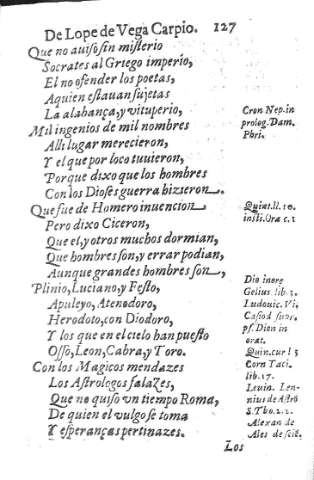 De Lope de Vega Carpio. 127
Que no auiso sin misterio
Socrates al Griego imperio,
El no ofender los poetas,
A quien estauan sujetas
La alabança, y vituperio,
Mil ingenios de mil nombres
Alli lugar merecieron,
Y el que por loco tuuieron,
Porque dixo que los hombres
Con los Dioses guerra hizieron.
Que fue de Homero inuencion
Pero dixo Ciceron,
Que el, y otros muchos dormian,
Que hombres son, y errar podian,
Aunque grandes hombres son,
Plinio, Luciano, y Festo,
Apuleyo, Atenodoro,
Herodoto, con Diodoro,
Y los que en el cielo han puesto
Osso, Leon, Cabra, y Toro.
Con los Magicos mendazes
Los Astrologos falazes,
Que no quiso vn tiempo Roma,
De quien el vulgo se toma
Y esperanças pertinazes.
Cron Nep. in
prolog. Dam.
Phri.
Quint. li. 10.
insti. Ora c. 1
Dio inere
Gelius lib. 1.
Ludouic. Vi,
Casiod super.
ps. Dion in
orat.
Quin. cur l 5
Corn Taci.
lib. 17.
Leuin. Len-
nius de Astro
S. Tho. 2. 2.
Alexan de
Ales de scië.
Los